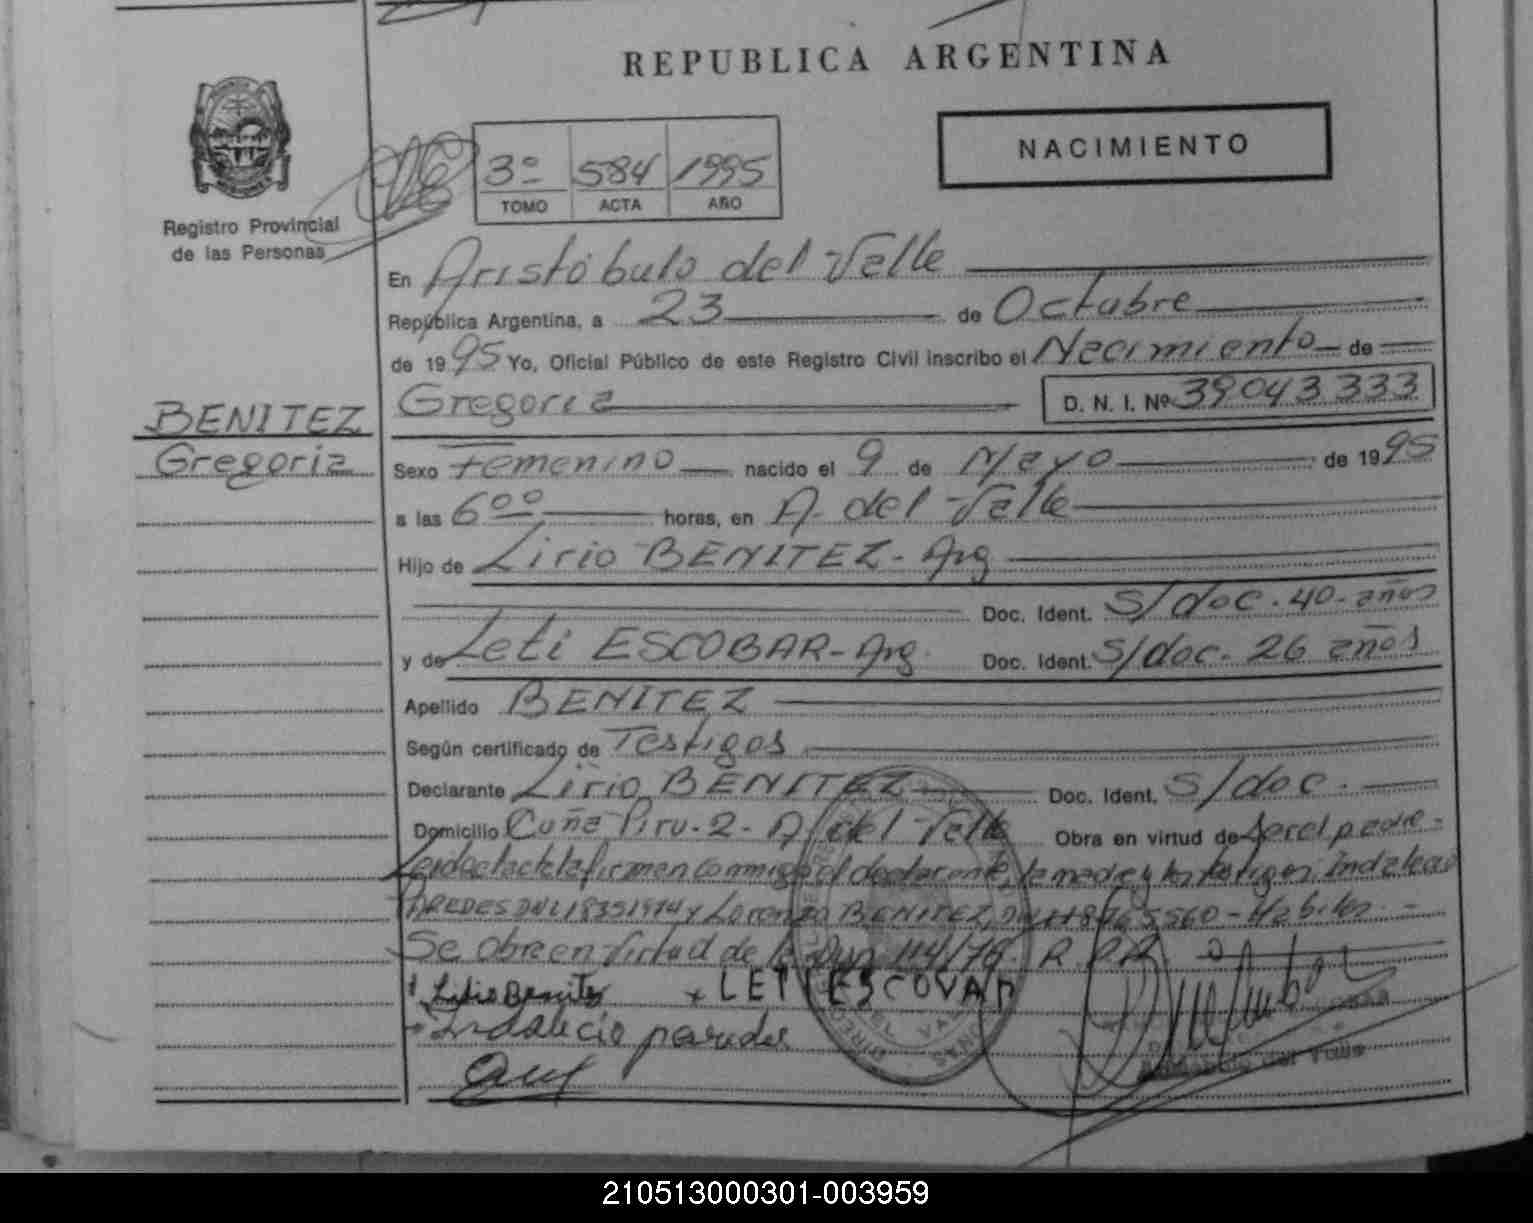 REPUBLICA ARGENTINA
NACIMIENTO
3º 584 1995
TOMO ACTA AÑO
Registro Provincial
de las Personas
En Aristóbulo del Valle
República Argentina, a 23 de Octubre
de 1995 Yo, Oficial Público de este Registro Civil inscribo el Nacimiento de
Gregoria D. N. I. Nº 39043333
BENITEZ
Gregoria
Sexo Femenino nacido el 9 de Mayo de 1995
a las 6ºº horas, en A. del Valle
Hijo de Lirio BENITEZ - Arg
Doc. Ident. S/doc. 40 - años
y de Leti ESCOBAR - Arg. Doc. Ident. S/doc. 26 años
Apellido BENITEZ
Según certificado de Testigos
Declarante Lirio BENITEZ Doc. Ident. S/doc.
Domicilio Cuña Piru - 2 - A. del Valle Obra en virtud de ser el padre -
Leida el acta la firman conmigo el declarante, la madre y los testigos: Indalecio
PAREDES DNI 18351974 y Lorenzo BENITEZ, DNI 18765560 - Habiles. -
Se obra en virtud de la 114/78. R. P. P.
Lirio Benitez x LETI ESCOVAR
Indalecio paredes
Aristóbulo del Valle
210513000301-003959